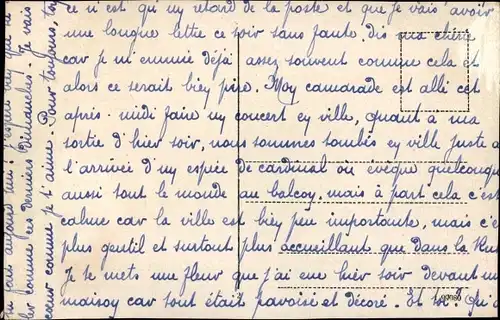 ce n'est qu'un retard de la poste et que je vais avoir
une longue lettre ce soir sans faute. dis ma chérie
car je m'ennuie déjà assez souvent comme cela et
alors ce serait bien pire. Mon camarade est allé cet
après-midi faire un concert en ville, quant à ma
sortie d'hier soir, nous sommes tombés en ville juste à
l'arrivée d'un espèce de cardinal ou évêque quelconque
aussi tout le monde au balcon. mais à part cela c'est
calme car la ville est bien peu importante, mais c'est
plus gentil et surtout plus accueillant que dans la
Je te mets une fleur que j'ai eue hier soir devant un
maison car tout était pavoisé et décoré. Et toi? Qu'a
aujourd'hui: j'espère bien que ne
comme ces derniers Dimanches. Je vais
cœur comme je t'aime. Pour toujours, ton